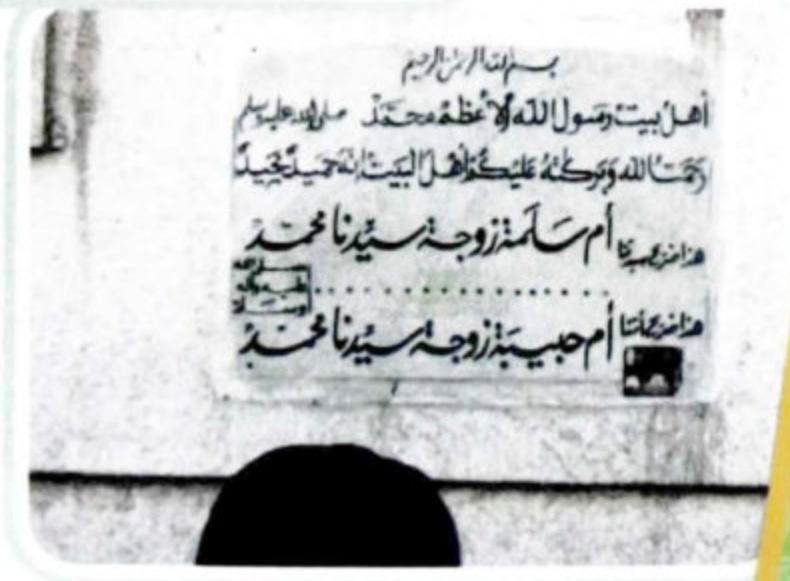 بسم الله الرحمن الرحيم
أهل بيت رسول الله الأعظم محمد صلى الله عليه وسلم
رحمت الله وبركته عليكم أهل البيت إنه حميد مجيد
هذا ضريح سيدتنا أم سلمة زوجة سيدنا محمد
صلى الله عليه وآله وسلم
هذا ضريح أم حبيبة زوجة سيدنا محمد